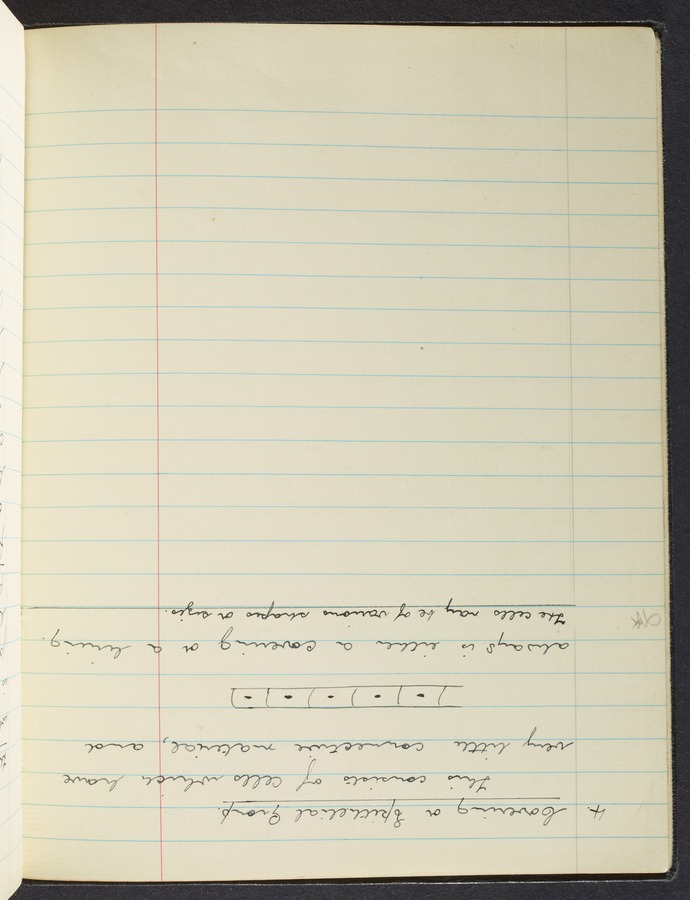 4. Covering or Epithelial Group.
This consists of cells which have
very little connective material, and
always is either a covering or a lining.
The cells may be of various shapes or sizes.